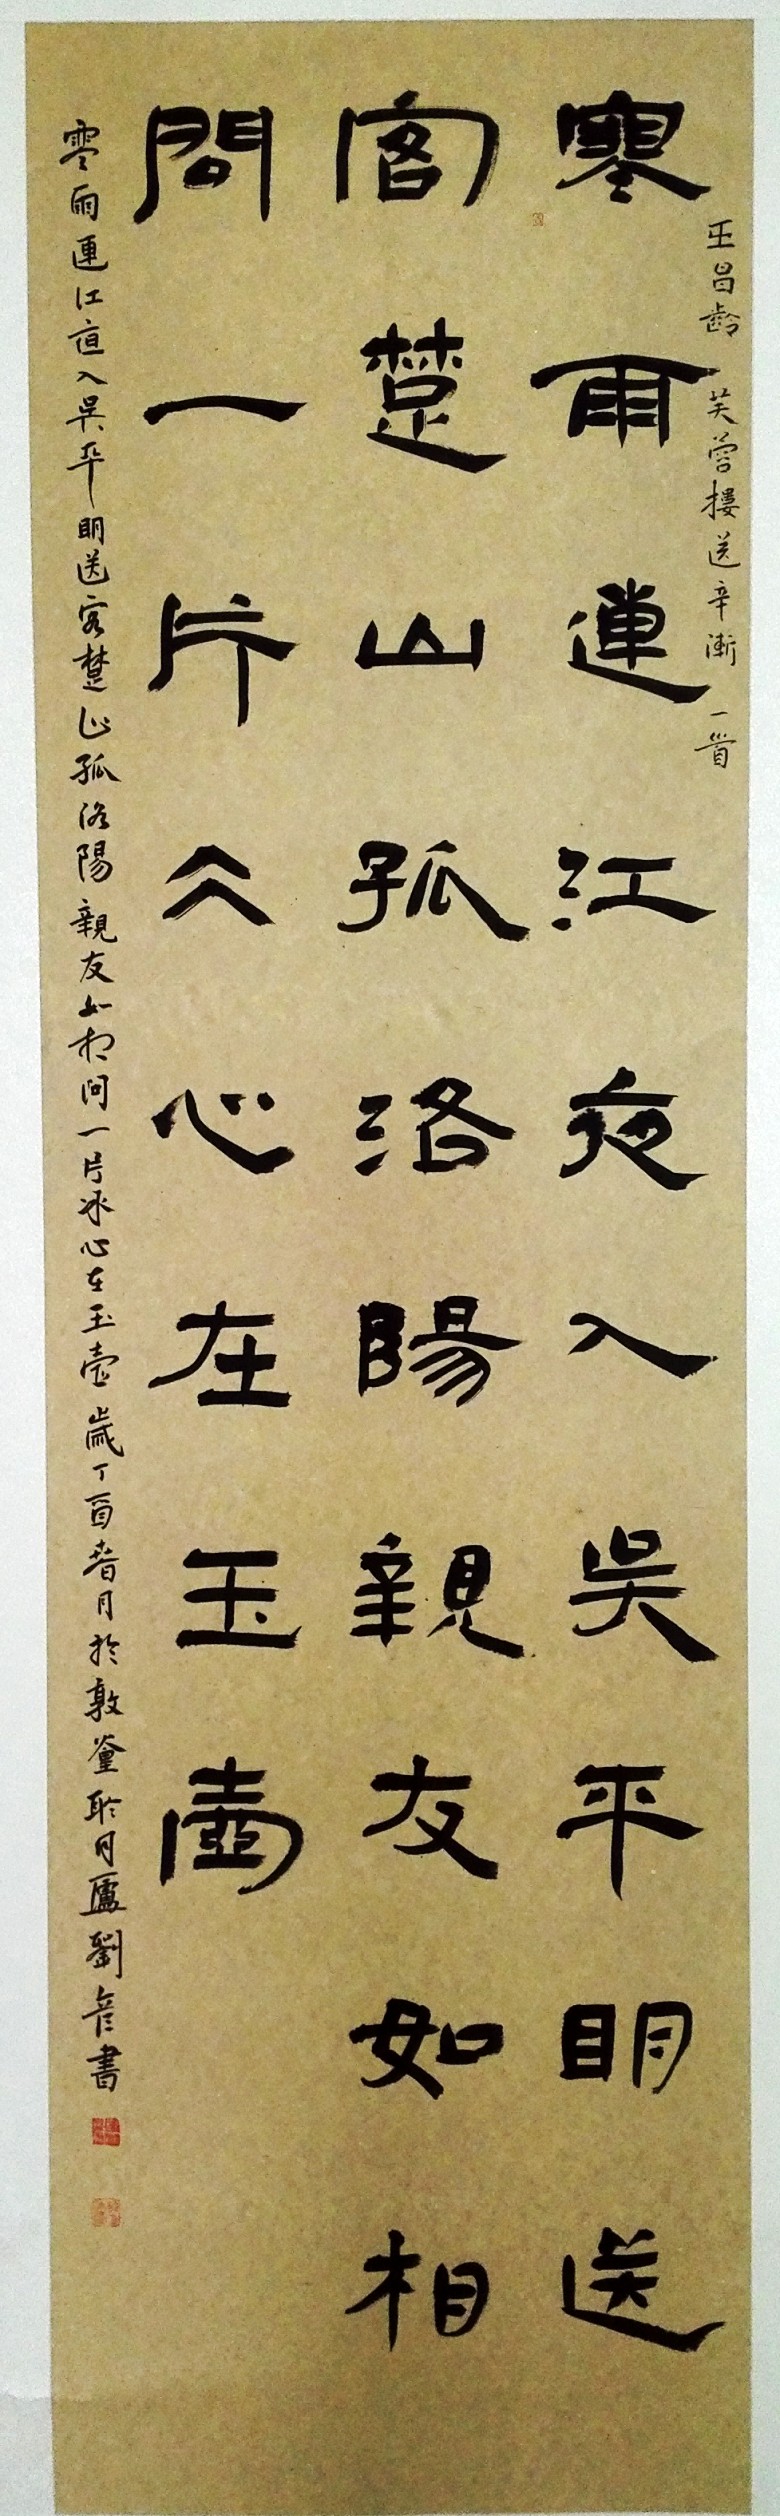 王昌齡 芙蓉樓送辛漸 一首
寒雨連江夜入吳平明送
客楚山孤洛陽親友如相
問一片仌心在玉壺
寒雨連江亱入吳平明送客楚山孤洛陽親友如相問一片冰心在玉壺歲丁酉春月於敦聆月廬劉書